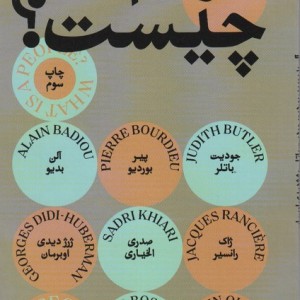 چیست؟
WHAT IS A PEOPLE?
چاپ
سوم
ALAIN BADIOU
آلن
بدیو
PIERRE BOURDIEU
پیر
بوردیو
JUDITH BUTLER
جودیت
باتلر
GEORGES DIDI-HUBERMAN
ژرژ دیدی
اوبرمان
SADRI KHIARI
صدری
الخیاری
JACQUES RANCIÈRE
ژاک
رانسیر